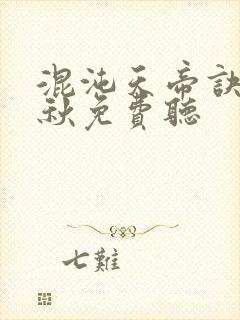 混沌天帝訣
秋免費聽
七難